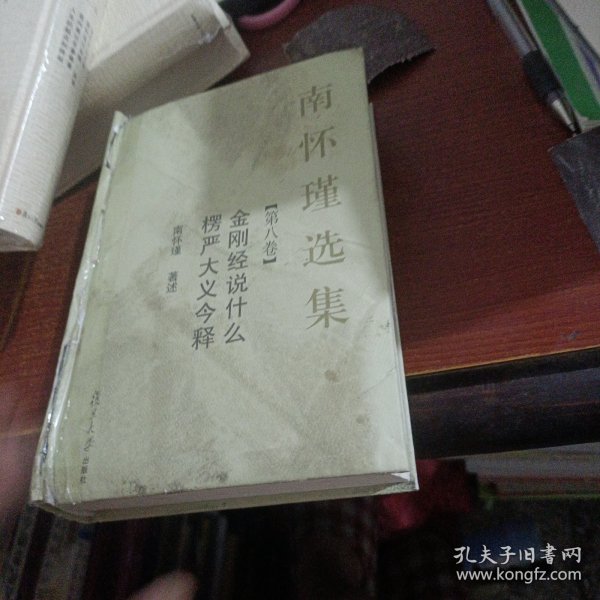 南怀瑾选集
【第八卷】
金刚经说什么
楞严大义今释
南怀瑾 著述
复旦大学出版社
孔夫子旧书网
www.kongfz.com